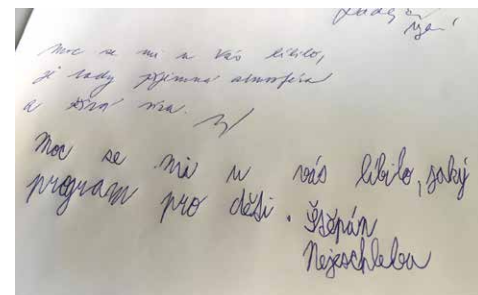 Moc se mi u Vás líbilo,
je tady příjemná atmosféra
a
Moc se mi u vás líbilo, jaký
program pro děti. Štěpán
Nejeschleba